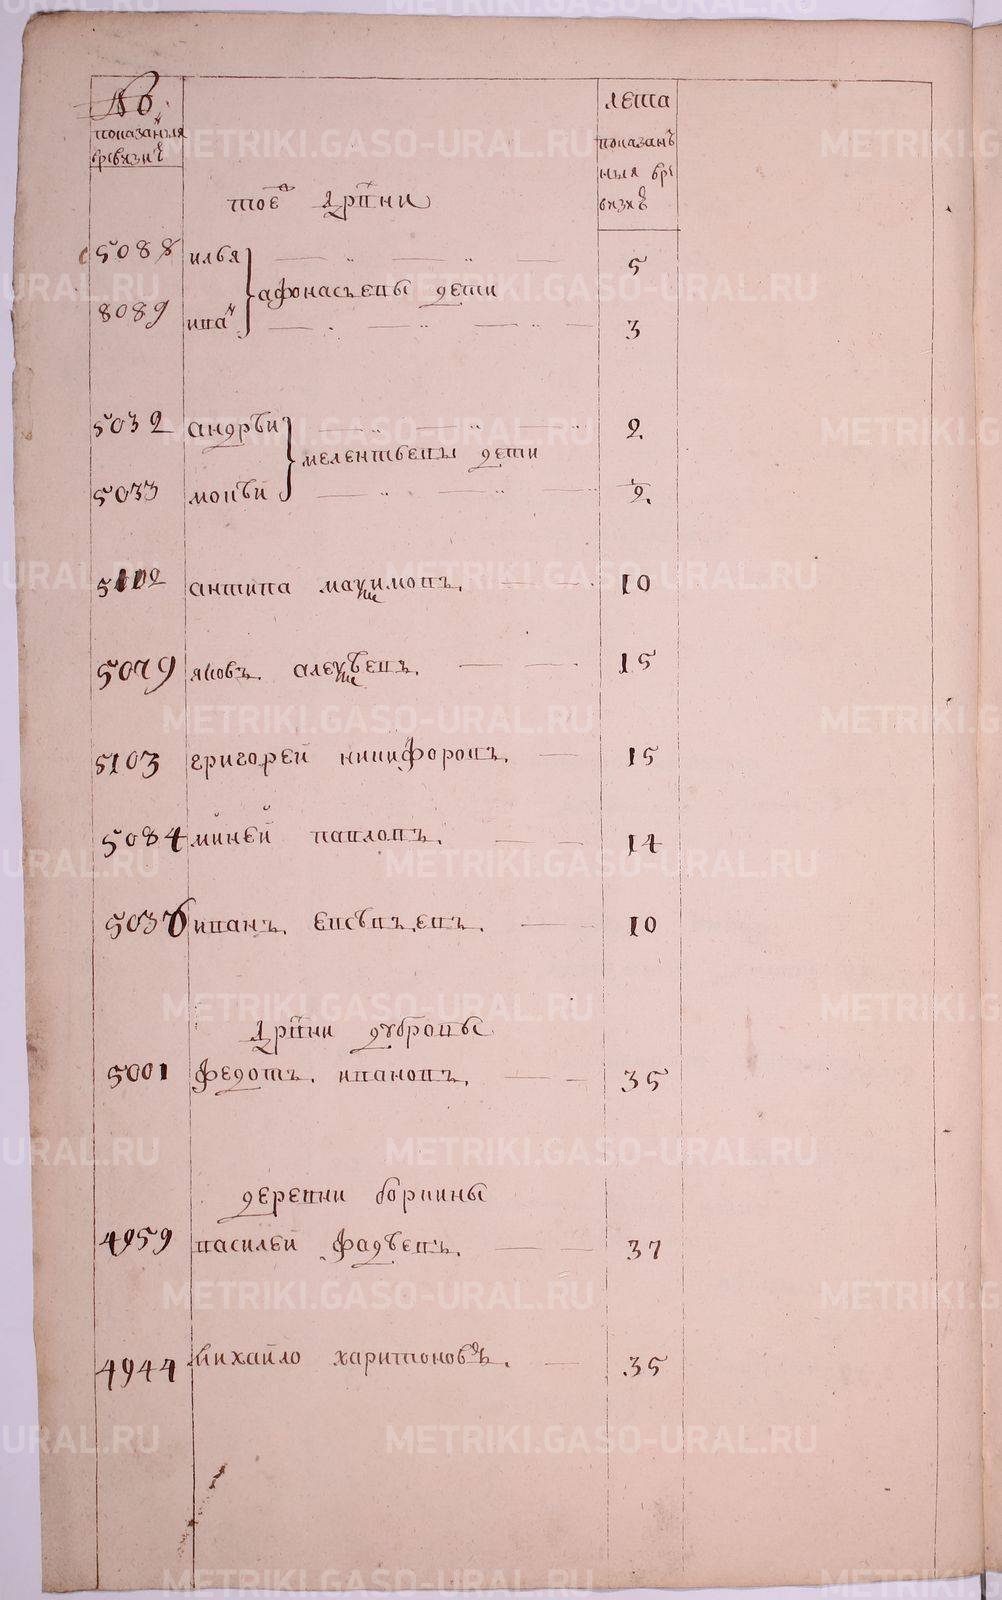 №
показанныя
вревизиѣ
лета
показанъ
ныя вре
визиѣ
тоеѣ дрвни
5088 илья 5
афонасьевы дети
8089 иванъ 3
5032 андрѣи 2
мелентьевы дети
5033 мокѣй 1/2
5102 антипа максимовъ. 10
5079 яковъ. алексѣевъ. 15
5103 григорей никифоровъ. 15
5084 миней павловъ. 14
5037 иванъ. евсѣвьевъ. 10
дрвни дубровы
5001 федотъ. ивановъ. 35
деревни боркины
4959 василей фадѣевъ. 37
4944 михайло харитоновъ. 35
METRIKI.GASO-URAL.RU